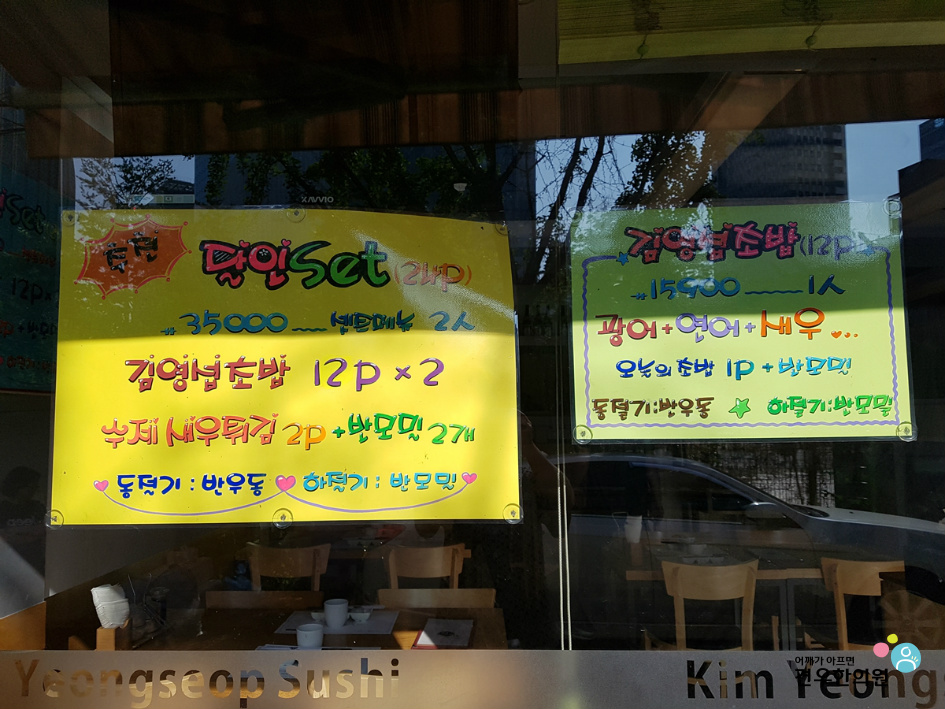 추천 달인Set(24p)
35000 세트메뉴 2人
김영섭초밥 12p×2
수제 새우튀김 2p+반모밀 2개
동절기 : 반우동 하절기 : 반모밀
김영섭초밥(12p)
15900 1人
광어+연어+새우...
오늘의초밥 1p+반모밀
동절기:반우동 하절기:반모밀
Yeongseop Sushi
Kim Yeong
어깨가 아프면
편우한의원